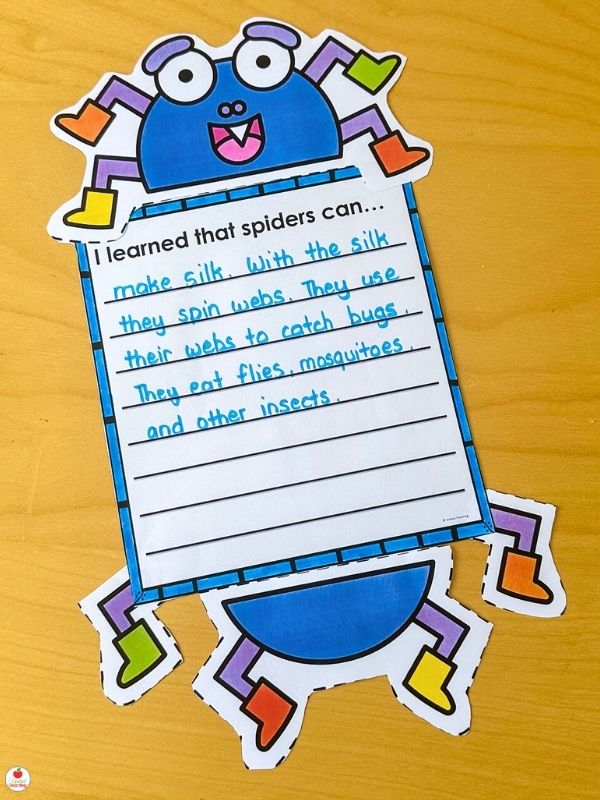 I learned that spiders can...
make silk. With the silk
they spin webs. They use
their webs to catch bugs.
They eat flies, mosquitoes,
and other insects.